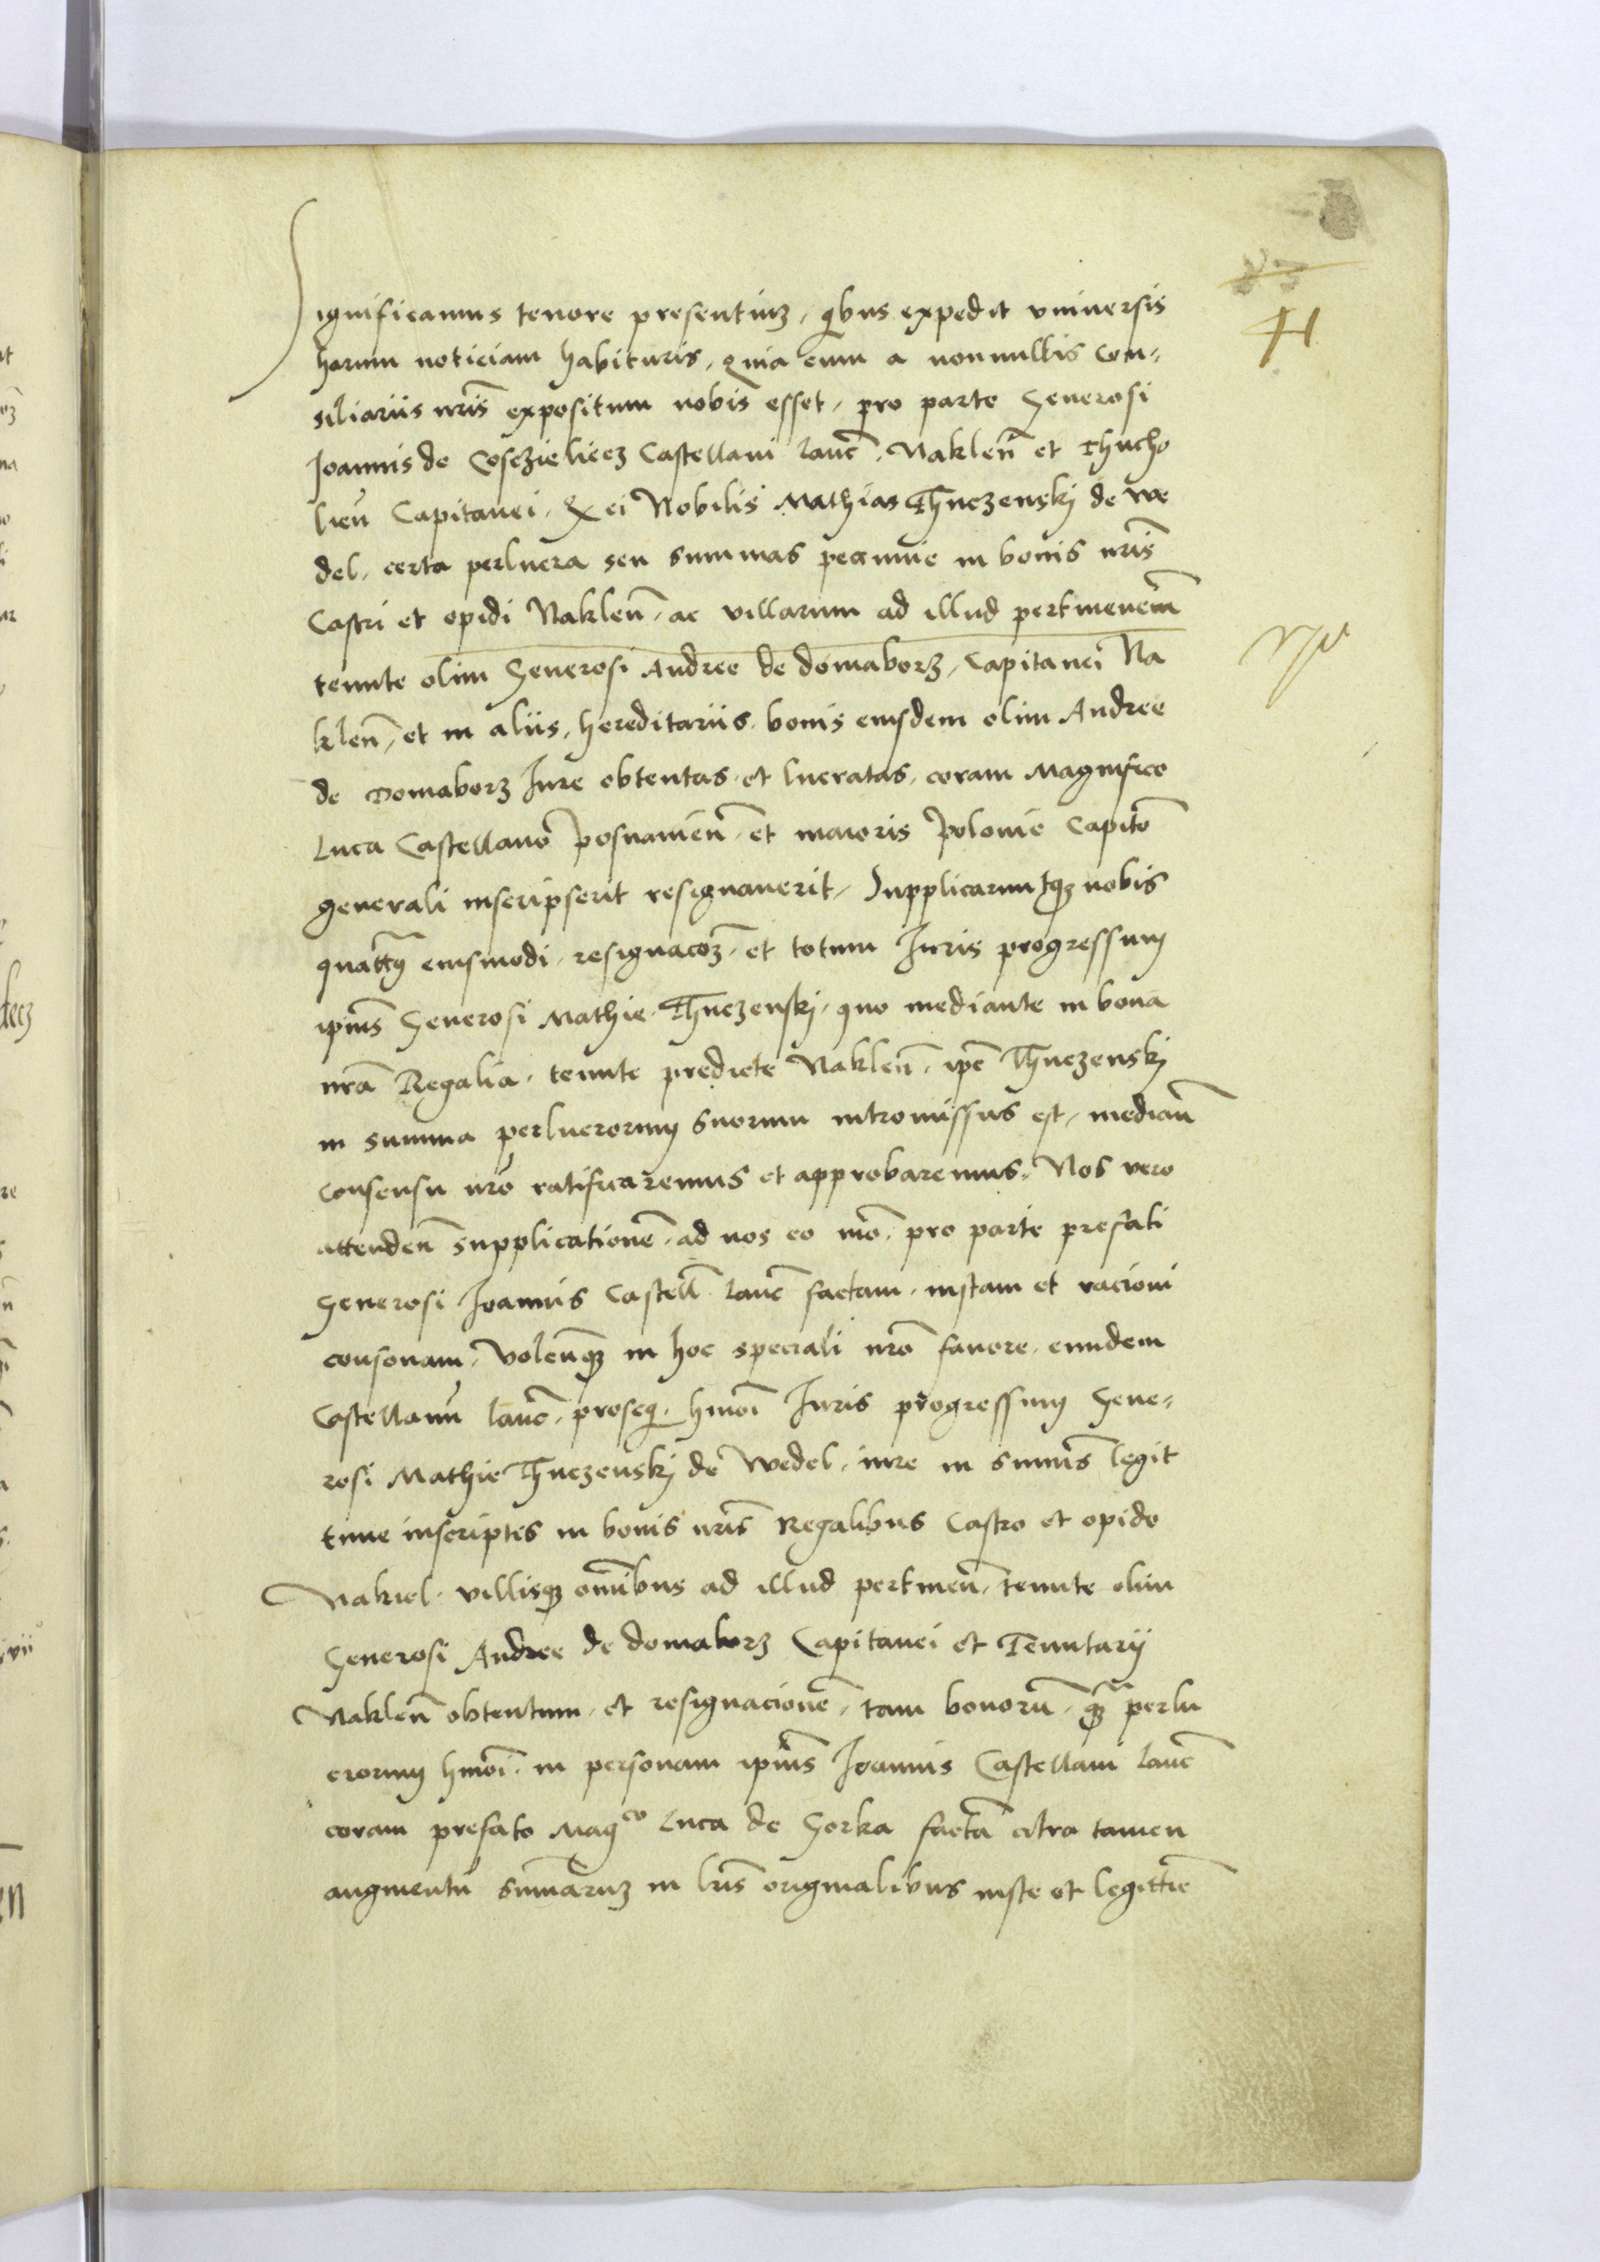 Significamus tenore presentiuz, qibus expedit vniuersis
harum noticiam habituris, quia cum a nonnullis con-
siliariis nrīs expositum nobis esset, pro parte Generosi
Joannis de Cosczieliecz Castellani Lancī. Naklen̄ et Thucho
lien̄ Capitanei. Qz ei Nobilis Mathias Thuczenskj de We
del, certa perlucra seu summas pecunie in bonis nrīs
Castri et opidi Naklen̄, ac villarum ad illud pertinenciū
tenute olim Generosi Andree de domaborz, Capitanei Na
klen̄, et in aliis, hereditariis, bonis eiusdem olim Andree
de Domaborz Jure obtentas et lucratas, coram Magnifico
Luca Castellano Posnanien̄, et maioris Polonie Capito
generali inscripserit resignauerit, Supplicaruntqz nobis
quatt9 eiusmodi, resignacōz, et totum Juris progressum
ipīus Generosi Mathie Thuczenskj, quo mediante in bona
nrā Regalia, tenute predicte Naklen̄, ipē Thuczenskj
in summa perlucrorum suorum intromissus est, median̄
consensu nrō ratificaremus et approbaremus, Nos vero
attenden̄ supplicationē, ad nos eo mō, pro parte prefati
Generosi Joannis Castell̄ Lancī factam, iustam et racioni
consonam, Volen̄qz in hoc speciali nrō fauore, eundem
Castellanū Lancī, proseqi, hmōi Juris progressum Gene-
rosi Mathie Thuczenskj de Wedel, iure in summīs legit
time inscriptis in bonis nrīs Regalibus Castro et opido
Nakiel, villisqz omībus ad illud pertinen̄, tenute olim
Generosi Andree de domaborz Capitanei et Tenutarij
Naklen̄ obtentum, et resignacionē, tam bonorū, qz perlu
crorum hmōi, in personam ipīus Joannis Castellani Lancī
coram prefato Magco Luca de Gorka factā citra tamen
augmentū summaruz in lrīs originalibus iuste et legittīe